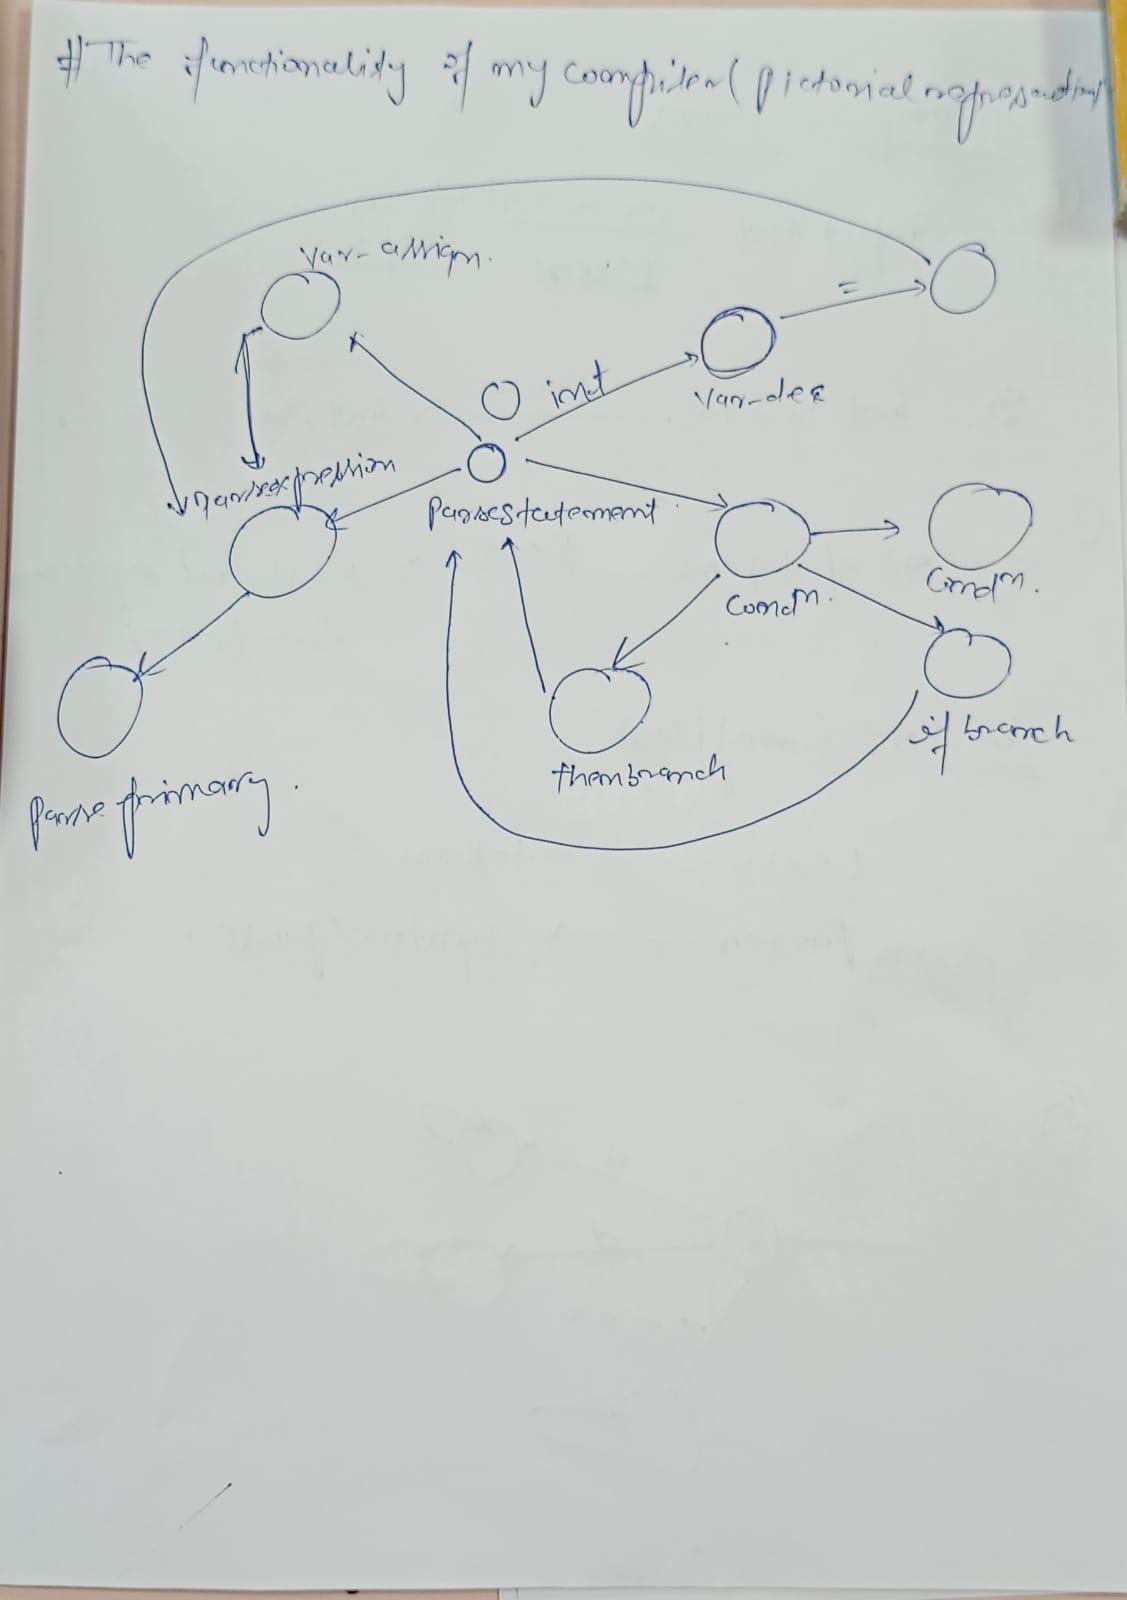 # The functionality of my compiler (pictorial representation)
var-assign.
=
int
var-dec
parseexpression
parsestatement
condn.
condn.
if branch
thenbranch
parse primary.